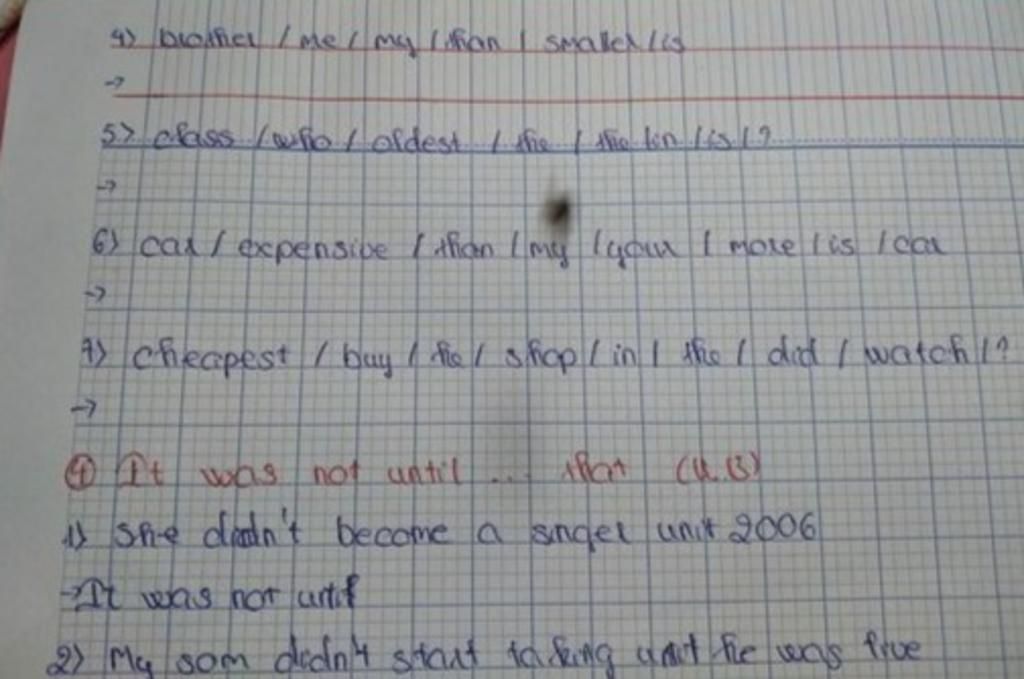 4) brother / me / my / than / smaller / is
→
5) class / who / oldest / the / the / in / is / ?
→
6) car / expensive / than / my / your / more / is / car
→
7) cheapest / buy / he / shop / in / the / did / watch / ?
→
④ It was not until ... that (U.B)
1) She didn't become a singer unit 2006
→ It was not until
2) My som didn't start talking unit he was five